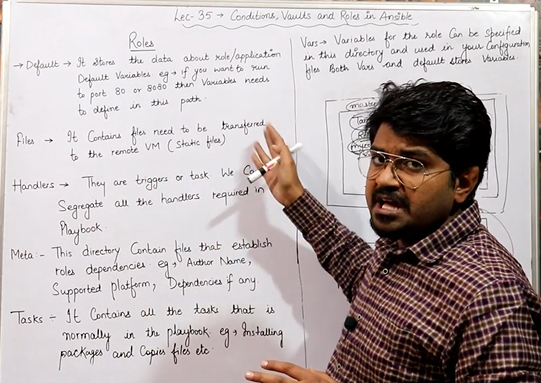 Lec-35 → Conditions, Vaults and Roles in Ansible
Roles
→ Default → It Stores the data about role/application
Default Variables eg → if you want to run
to port 80 or 8080 then Variables needs
to define in this path.
Files → It Contains files need to be transferred
to the remote VM (Static files)
Handlers → They are triggers or task. We Can
Segregate all the handlers required in
Playbook.
Meta :- This directory Contain files that establish
roles dependencies eg → Author Name,
Supported platform, Dependencies if any.
Tasks :- It Contains all the tasks that is
normally in the playbook. eg → Installing
packages and Copies files etc.
Vars → Variables for the role Can be Specified
in this directory and used in your Configuration
files Both Vars and default stores Variables.
master